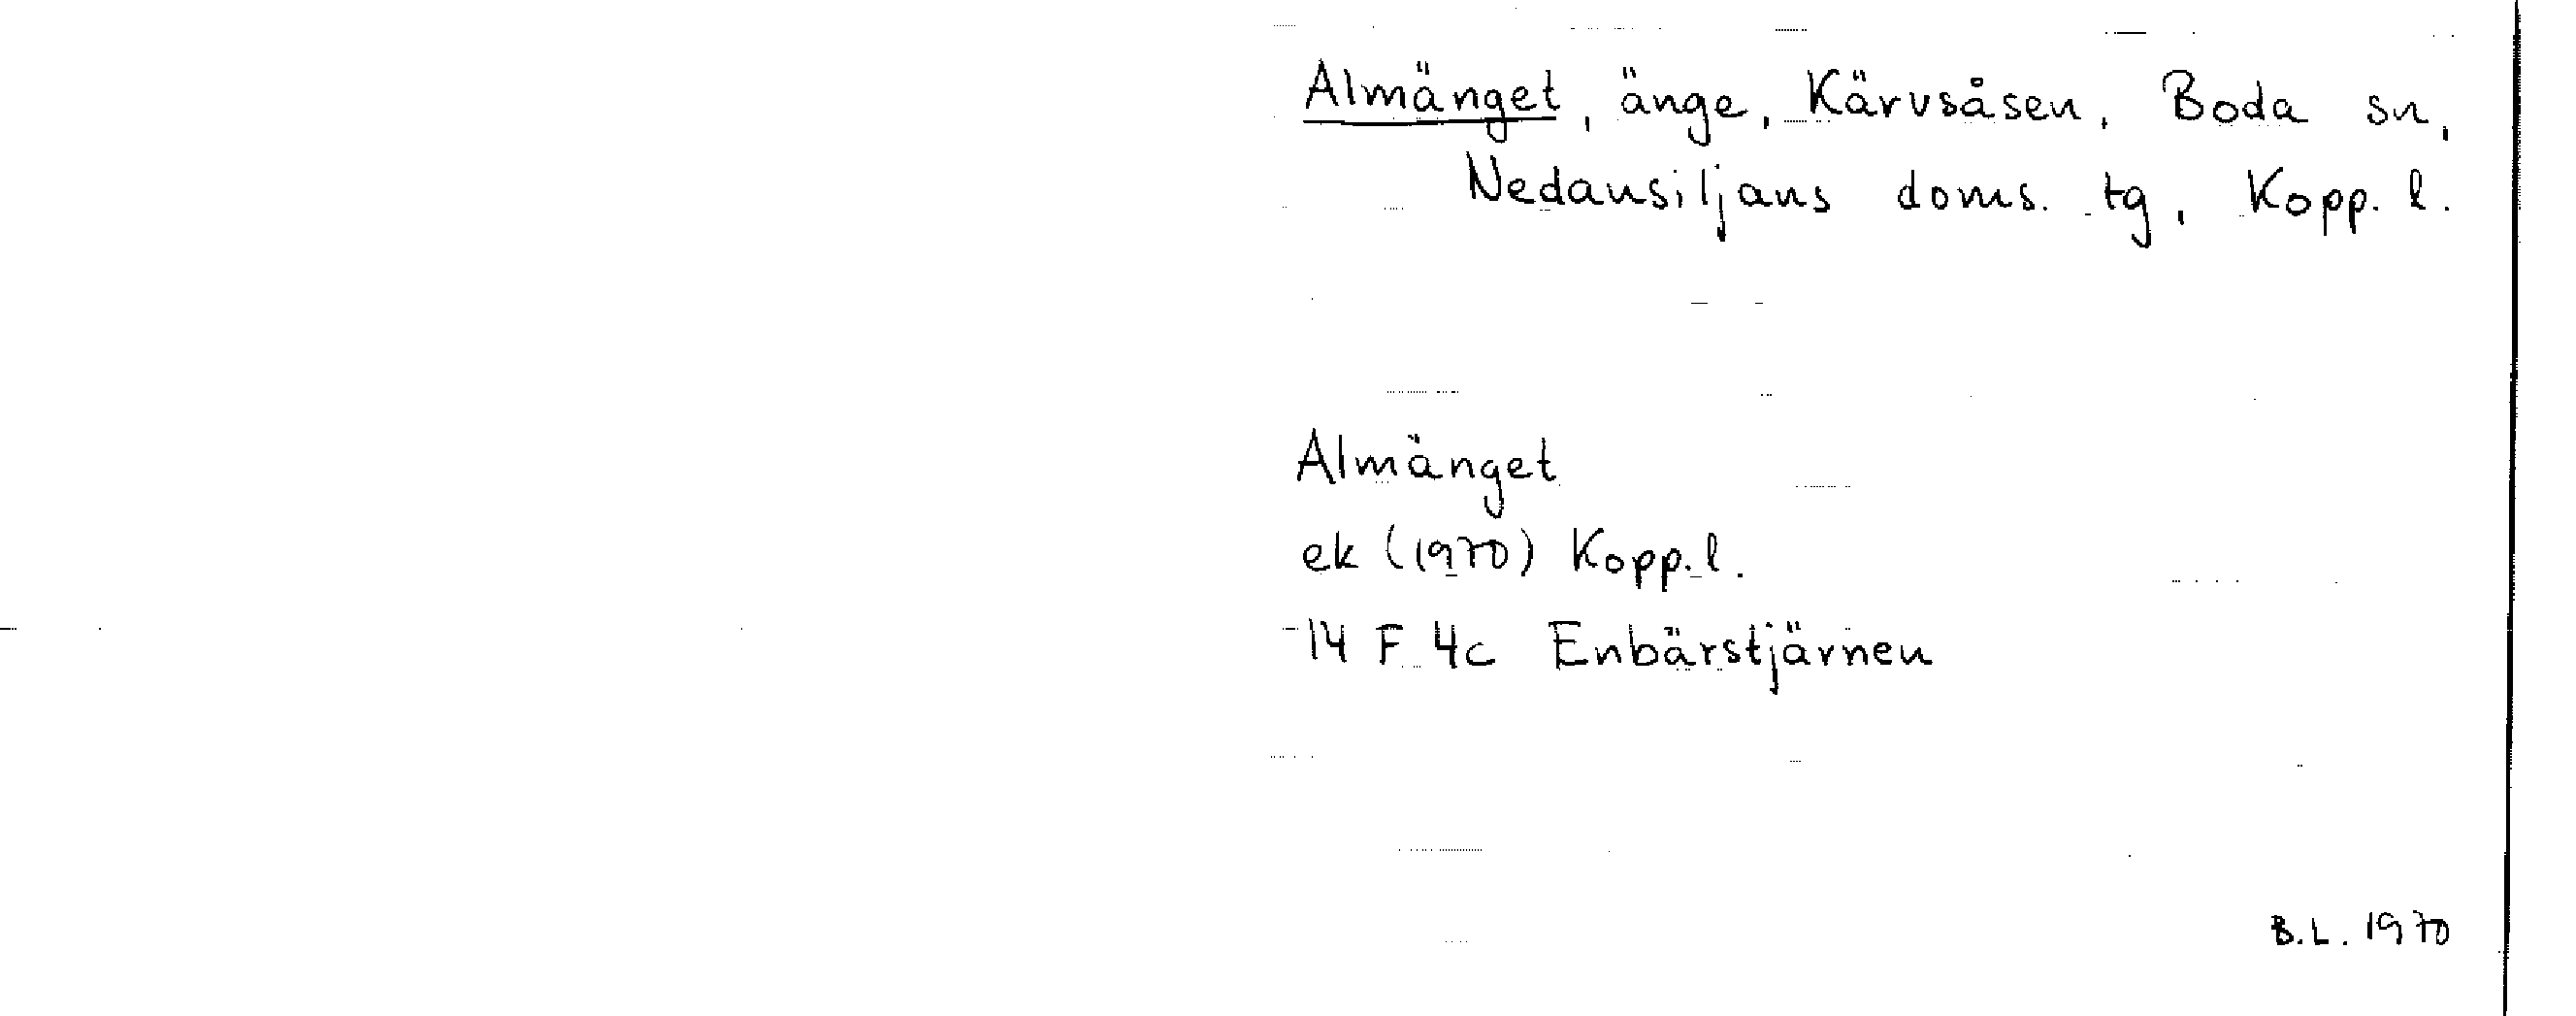 Almänget, änge, Kärvsåsen, Boda sn,
Nedansiljans doms. tg, Kopp. l.
Almänget
ek (1970) Kopp. l.
14 F 4c Enbärstjärnen
B.L. 1970